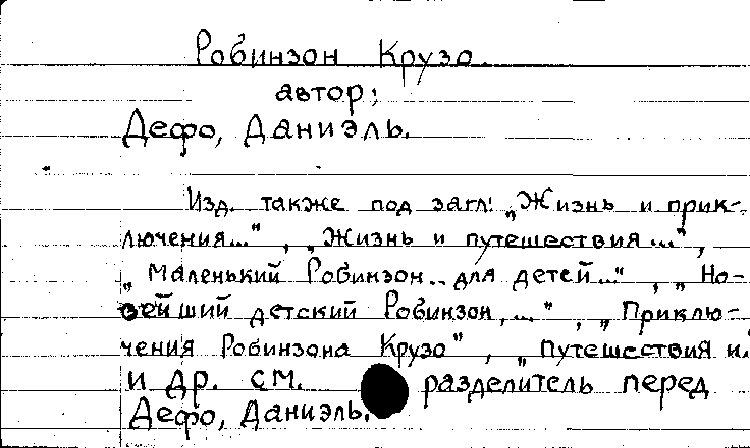 Робинзон Крузо.
автор;
Дефо, Даниэль.
Изд. также под загл: „Жизнь и прик-
лючения...“, „Жизнь и путешествия...“,
„Маленький Робинзон... для детей...“, „Но-
вейший детский Робинзон,...“, „Приклю-
чения Робинзона Крузо“, „Путешествия и.
и др. см. разделитель перед
Дефо, Даниэль.